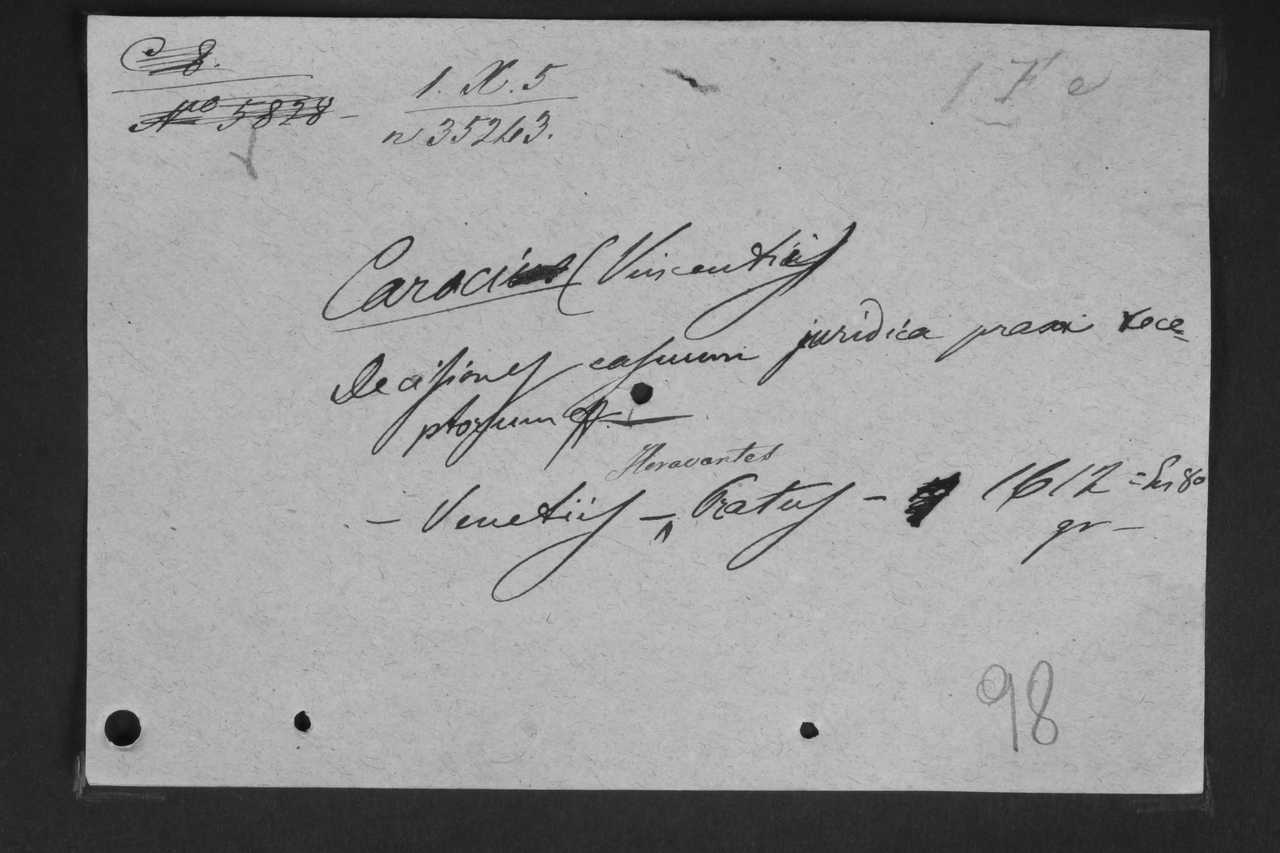 C 8.
No 5828 –
1. X. 5
n 35243.
1 F e
Caroci (Vincentius
Decisiones casuum juridica praxi rece=
ptorum
Moravantes
– Venetiis – Pratus – 1612 =
gr –
98